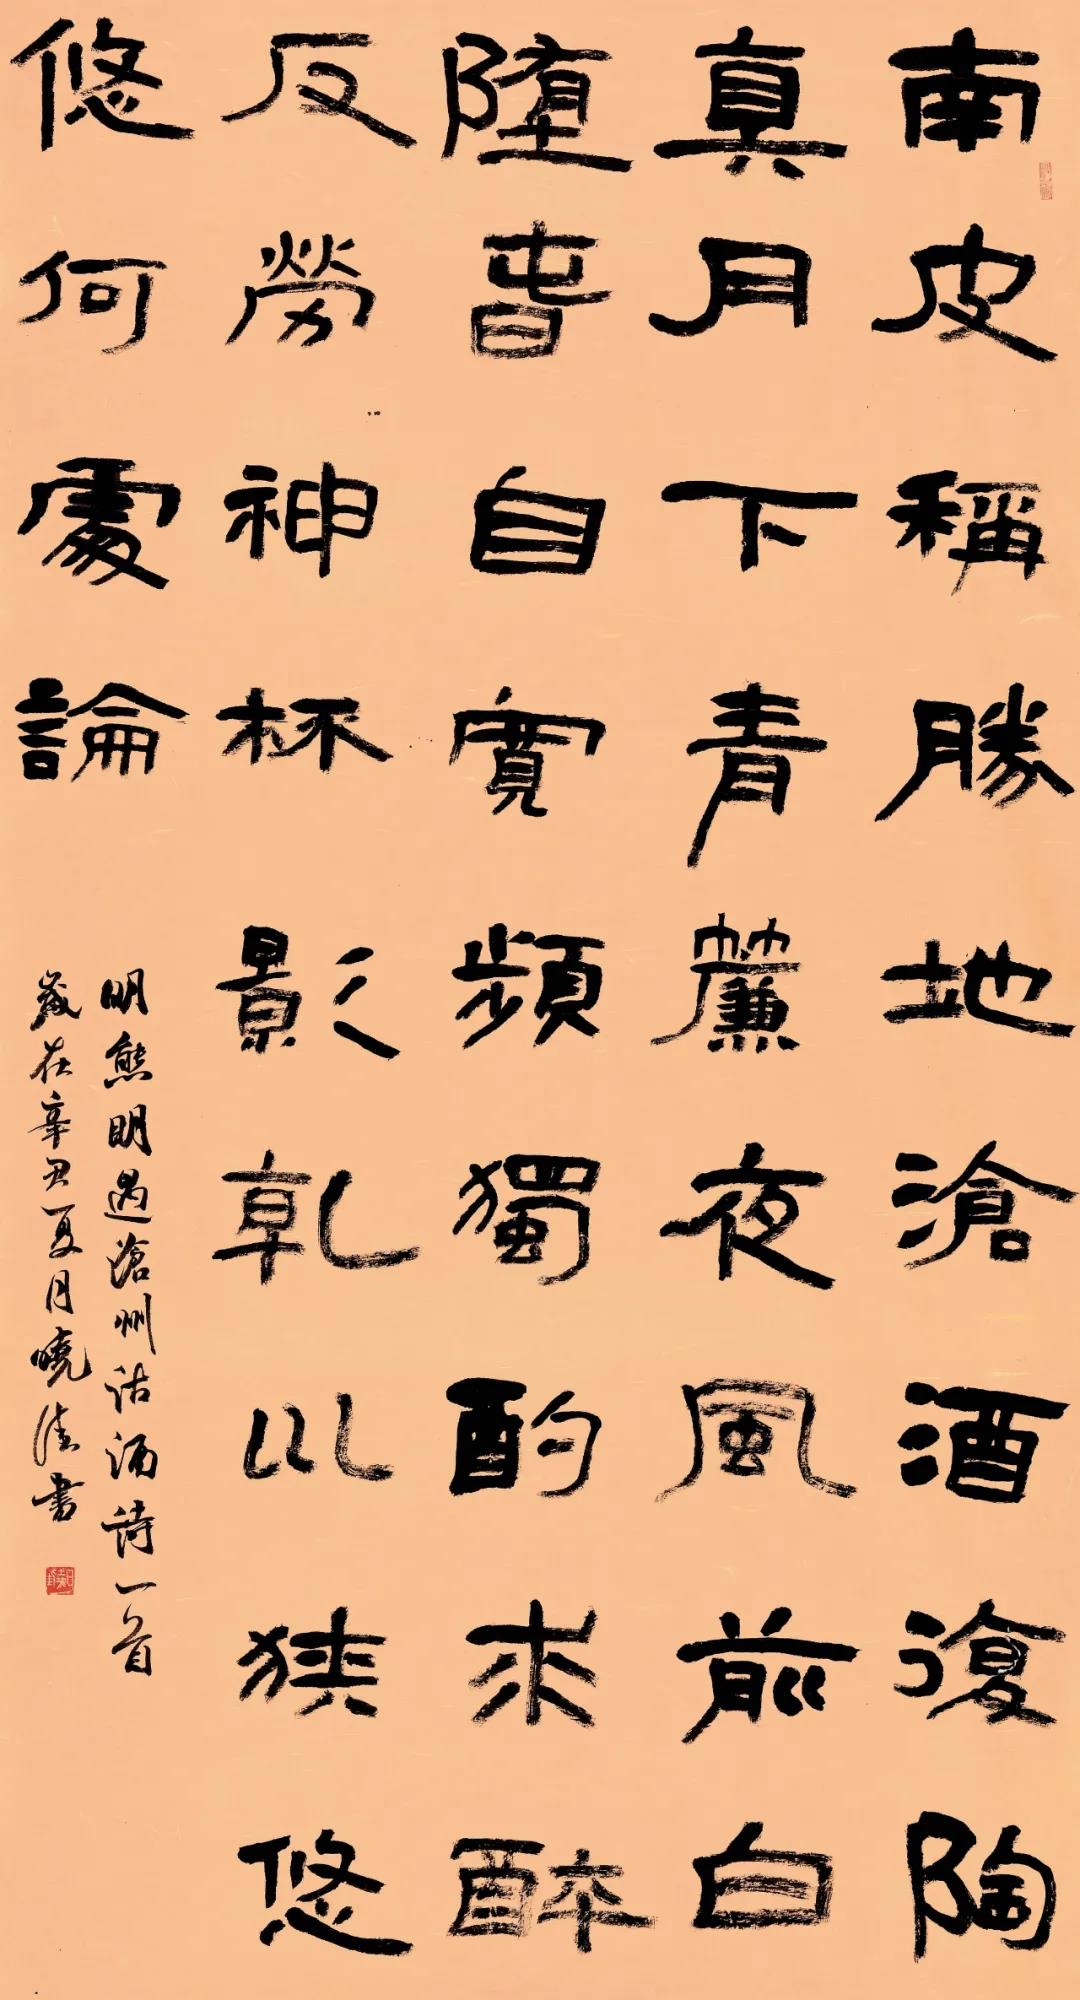 南皮稱勝地滄酒復陶
真月下青簾夜風前白
墮旾自寬頻獨酌求醉
反勞神杯影乾以狹悠
悠何處論
明熊明遇滄州沽酒詩一首
歲在辛丑夏月曉書